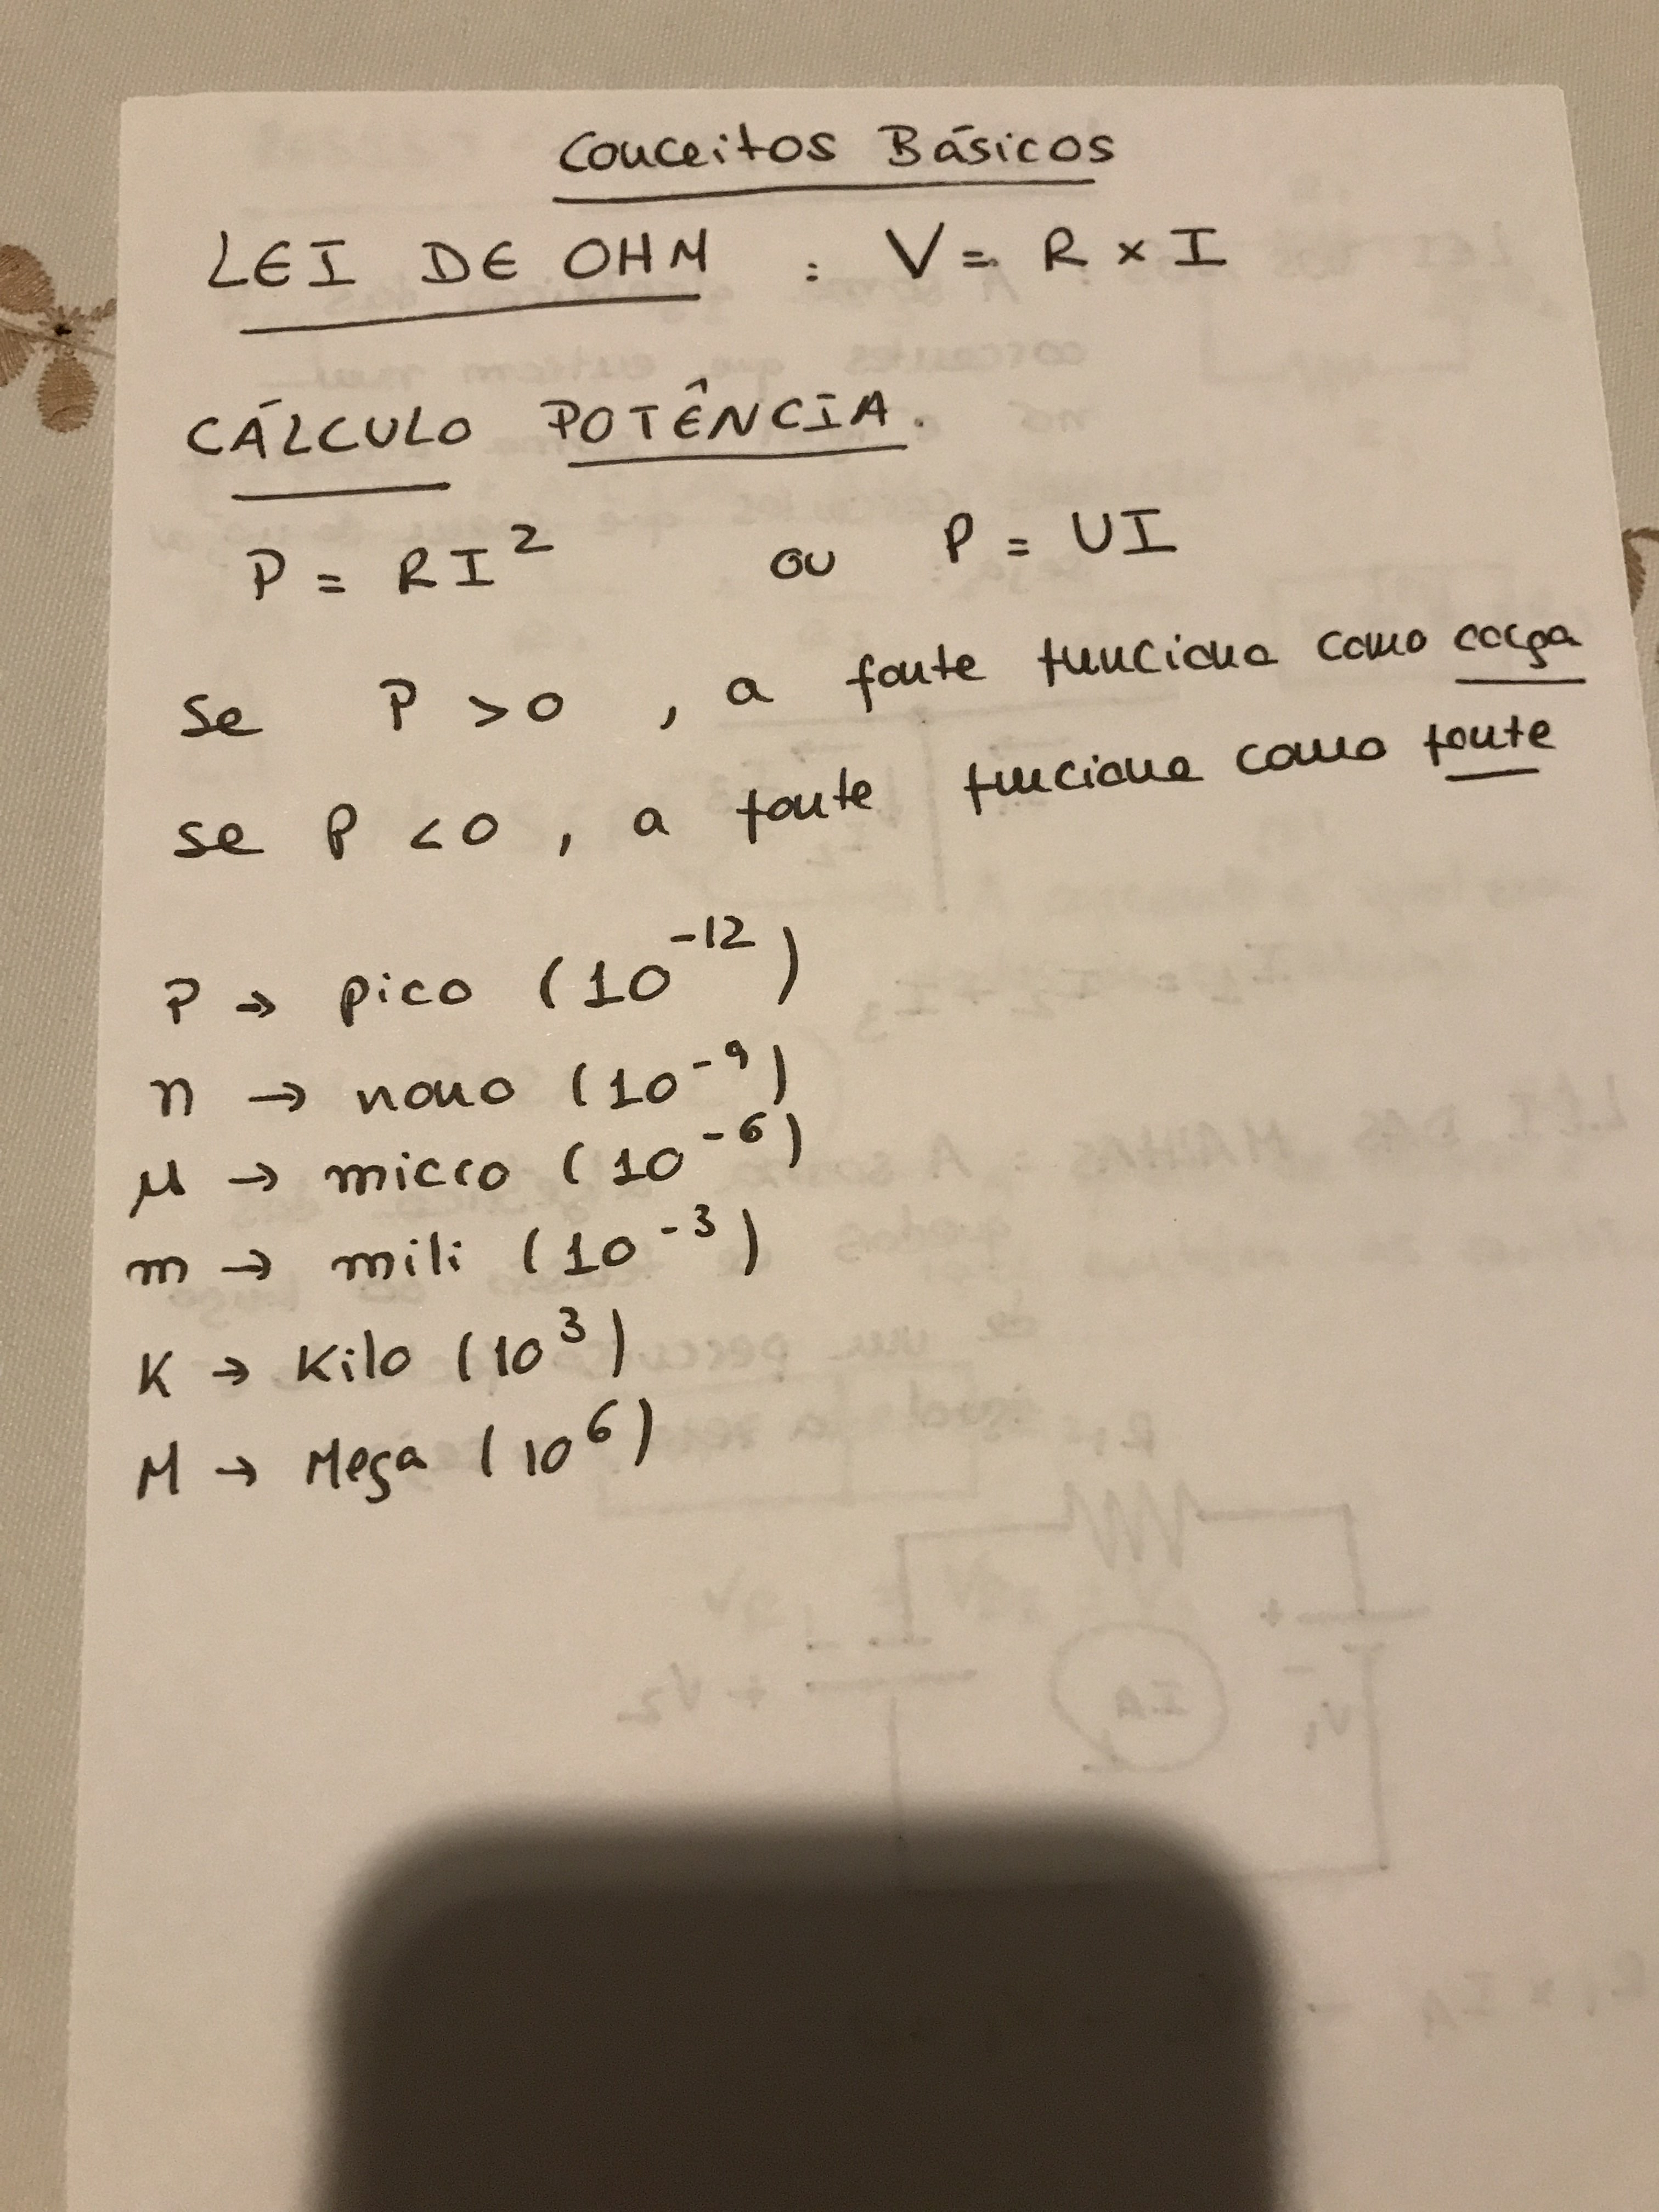 Conceitos Básicos
LEI DE OHM : V = R x I
CÁLCULO POTÊNCIA.
P = RI² ou P = UI
Se P > 0 , a fonte funciona como carga
se P < 0 , a fonte funciona como fonte
P → pico (10⁻¹²)
n → nano (10⁻⁹)
μ → micro (10⁻⁶)
m → mili (10⁻³)
K → Kilo (10³)
M → Mega (10⁶)